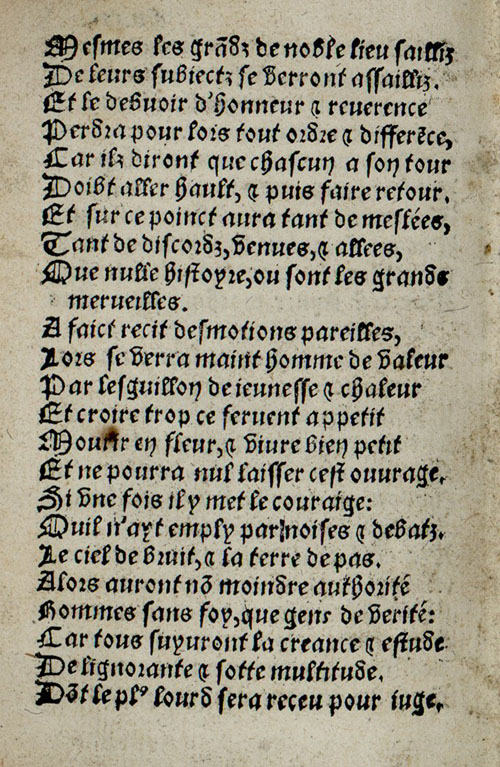 Mesmes les grãdz de noble lieu sailliz
De leurs subiectz se verront assailliz.
Et le debuoir d'honneur & reuerence
Perdra pour lors tout ordre & differẽce,
Car ilz diront que chascun a son tour
Doibt aller hault, & puis faire retour.
Et sur ce poinct aura tant de meslées,
Tant de discordz, venues, & allees,
Que nulle histoyre, ou sont les grands
merueilles.
A faict recit desmotions pareilles,
Lors se verra maint homme de valeur
Par lesguillon de ieunesse & chaleur
Et croire trop ce feruent appetit
Mourir en fleur, & viure bien petit
Et ne pourra nul laisser cest ouurage,
Si vne fois il y met le couraige:
Quil n'ayt emply par noises & debatz.
Le ciel de bruit, & la terre de pas.
Alors auront nõ moindre authorité
Hommes sans foy, que gens de verité:
Car tous suyuront la creance & estude
De lignorante & sotte multitude.
Dõt le plꝰ lourd sera receu pour iuge,